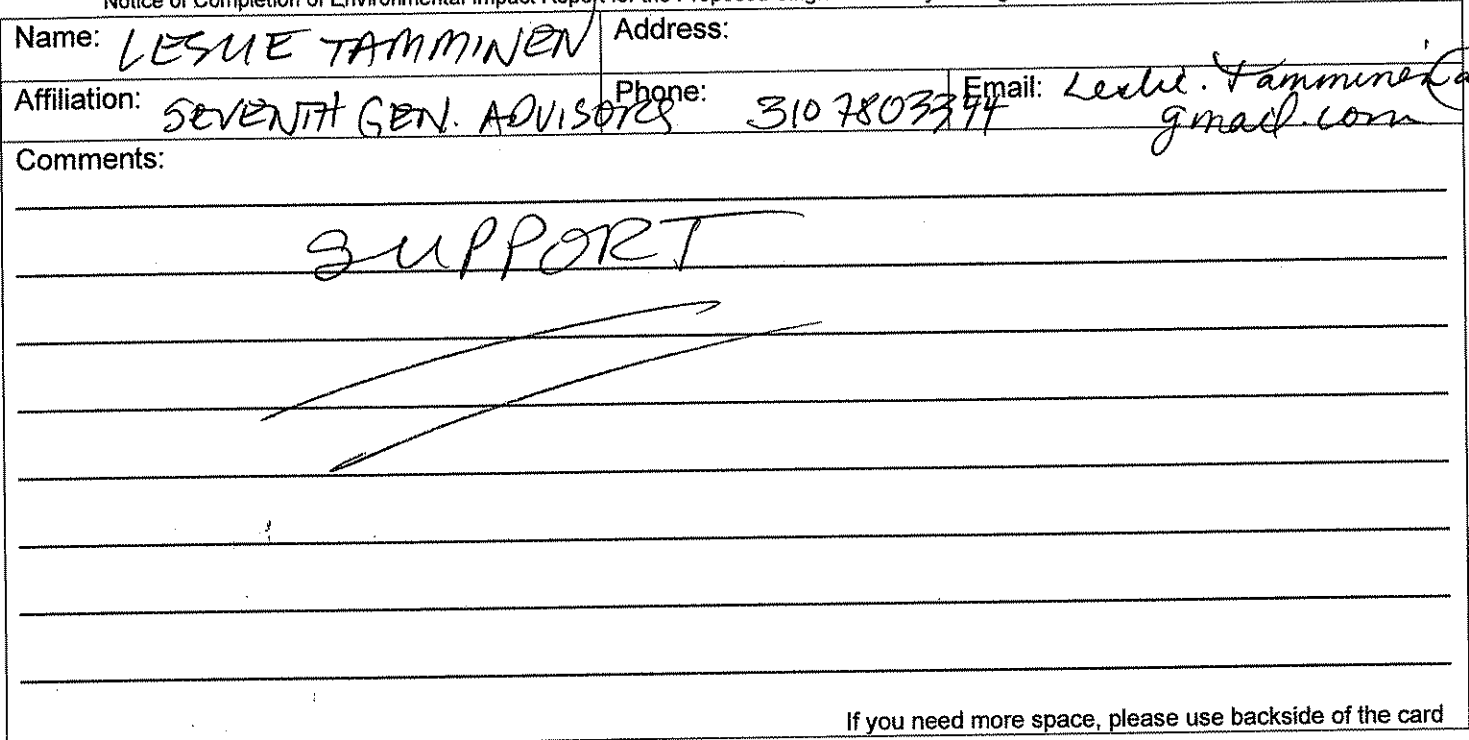 Notice of Completion of Environmental Impact Report for the Proposed
Name: LESLIE TAMMINEN Address:
Affiliation: SEVENTH GEN. ADVISORS Phone: 310 7803344 Email: Leslie.Tamminen@
gmail.com
Comments:
SUPPORT
If you need more space, please use backside of the card